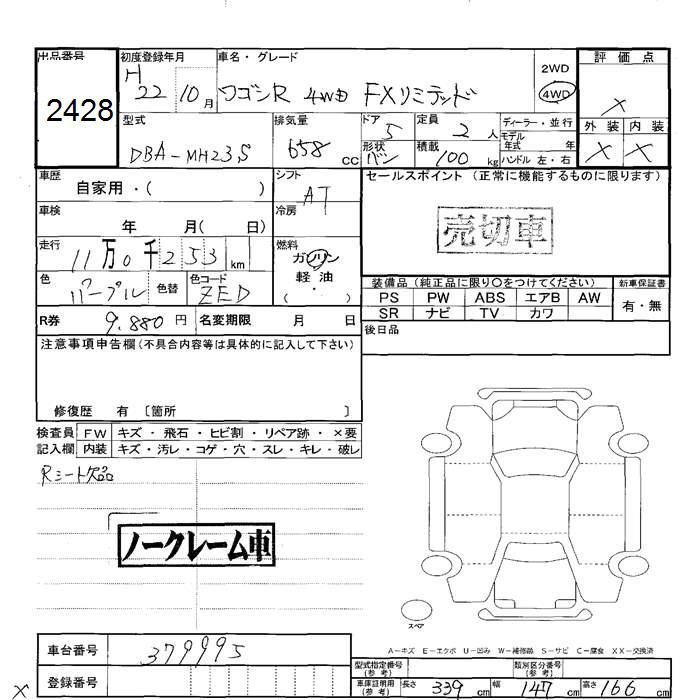 出品番号
2428
初度登録年月
H 22 10月
車名・グレード
ワゴンR 4WD FXリミテッド
2WD
4WD
評価点
×
外装 内装
× ×
型式
DBA-MH23S
排気量
658 cc
ドア 5
形状 バン
定員 2 人
積載 100 kg
ディーラー・並行
モデル年式 年
ハンドル 左・右
車歴
自家用・( )
シフト
AT
車検
年 月( 日)
冷房
走行
11万0千253 km
燃料
ガソリン
軽油
・
色
パープル
色替
色コード
ZED
R券
9.880 円
名変期限 月 日
セールスポイント (正常に機能するものに限ります)
売切車
装備品 (純正品に限り○をつけてください)
新車保証書
PS PW ABS エアB AW
SR ナビ TV カワ
有・無
後日品
注意事項申告欄(不具合内容等は具体的に記入して下さい)
修復歴 有 〔箇所 〕
検査員 FW キズ・飛石・ヒビ割・リペア跡・×要
記入欄 内装 キズ・汚レ・コゲ・穴・スレ・キレ・破レ
Rシート欠品
ノークレーム車
スペア
A-キズ E-エクボ U-凹み W-補修跡 S-サビ C-腐食 XX-交換済
車台番号
379995
登録番号
×
型式指定番号
(参考)
類別区分番号
(参考)
車庫証明用
(参考)
長さ 339 cm 幅 147 cm 高さ 166 cm